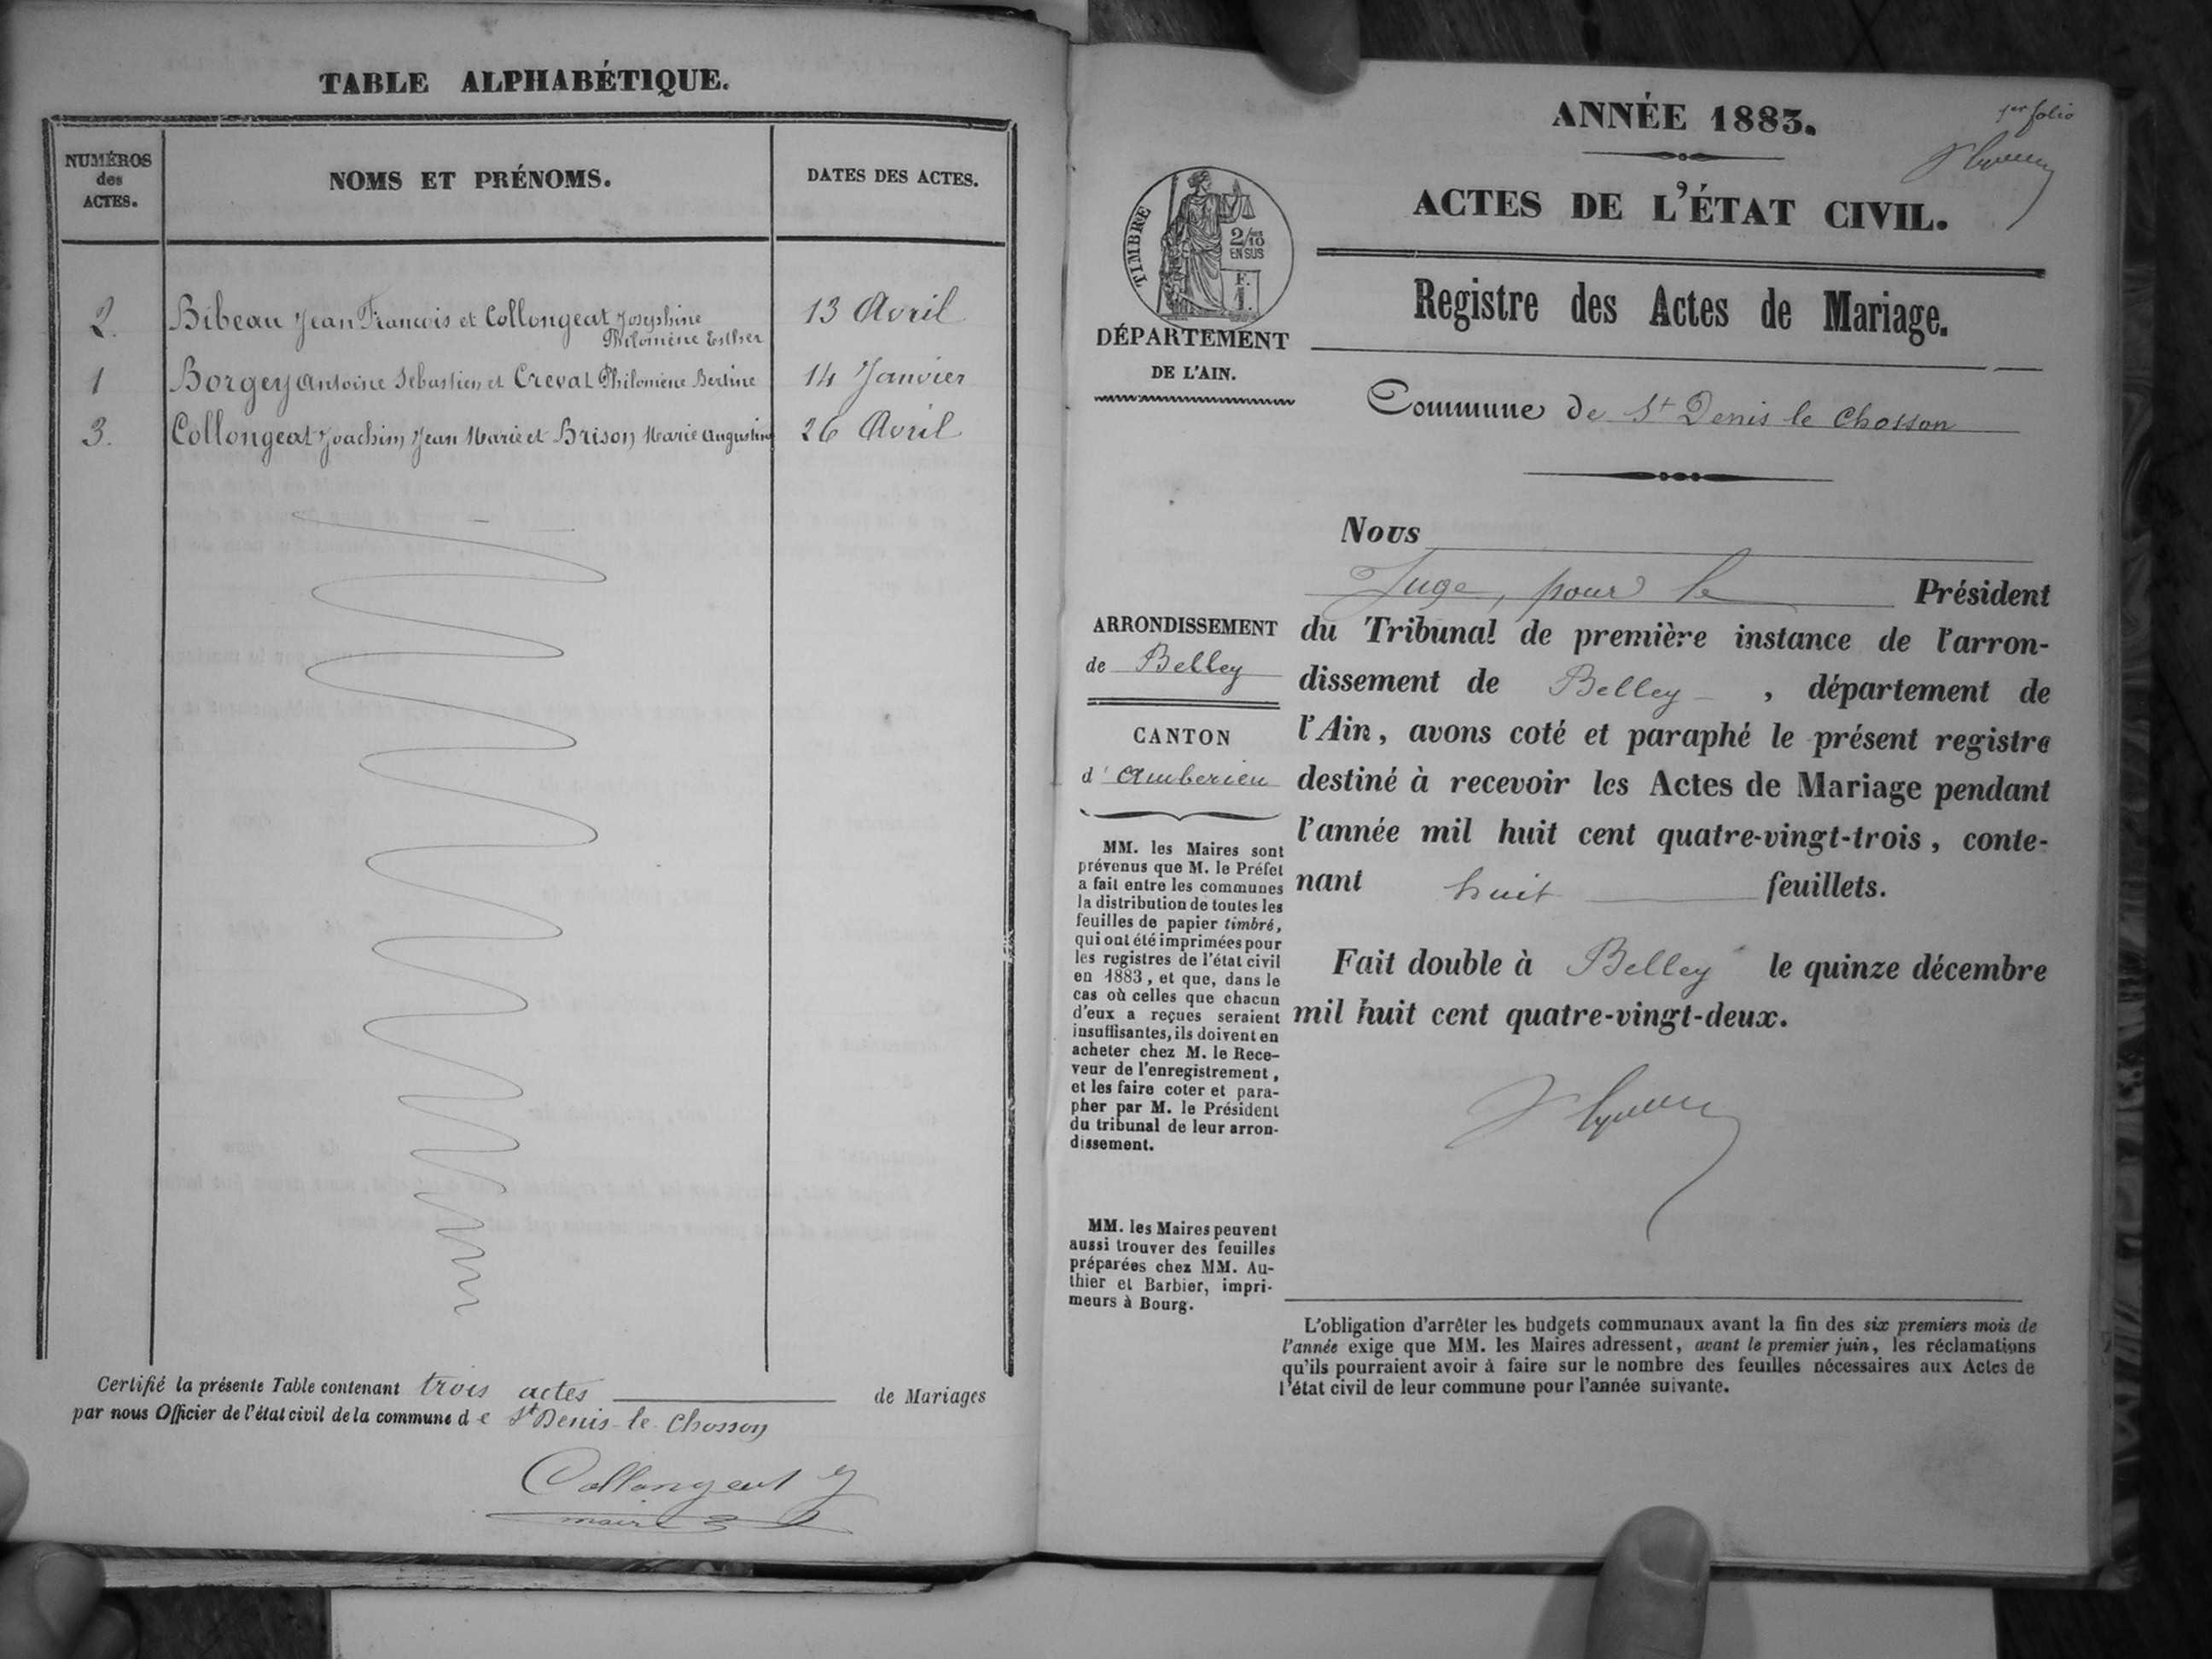 TABLE ALPHABÉTIQUE.
NUMÉROS des ACTES.
NOMS ET PRÉNOMS.
DATES DES ACTES.
2. Bibeau Jean Francois et Collongeat Josephine Philomène Esther 13 Avril
1 Borgey Antoine Sébastien et Crevat Philomène Bertine 14 Janvier
3. Collongeat Joachim Jean Marie et Brison Marie Augustine 26 Avril
Certifié la présente Table contenant trois actes de Mariages
par nous Officier de l'état civil de la commune de St Denis-le-Chosson
Collongeat J
maire
1er folio
ANNÉE 1883.
ACTES DE L'ÉTAT CIVIL.
TIMBRE
2/10
EN SUS
F.
1.
Registre des Actes de Mariage.
DÉPARTEMENT
DE L'AIN.
Commune de St Denis le Chosson
ARRONDISSEMENT
de Belley
CANTON
d'Amberieu
MM. les Maires sont
prévenus que M. le Préfet
a fait entre les communes
la distribution de toutes les
feuilles de papier timbré,
qui ont été imprimées pour
les registres de l'état civil
en 1883, et que, dans le
cas où celles que chacun
d'eux a reçues seraient
insuffisantes, ils doivent en
acheter chez M. le Rece-
veur de l'enregistrement,
et les faire coter et para-
pher par M. le Président
du tribunal de leur arron-
dissement.
MM. les Maires peuvent
aussi trouver des feuilles
préparées chez MM. Au-
thier et Barbier, impri-
meurs à Bourg.
Nous
Juge, pour le Président
du Tribunal de première instance de l'arron-
dissement de Belley, département de
l'Ain, avons coté et paraphé le présent registre
destiné à recevoir les Actes de Mariage pendant
l'année mil huit cent quatre-vingt-trois, conte-
nant huit feuillets.
Fait double à Belley le quinze décembre
mil huit cent quatre-vingt-deux.
L'obligation d'arrêter les budgets communaux avant la fin des six premiers mois de
l'année exige que MM. les Maires adressent, avant le premier juin, les réclamations
qu'ils pourraient avoir à faire sur le nombre des feuilles nécessaires aux Actes de
l'état civil de leur commune pour l'année suivante.